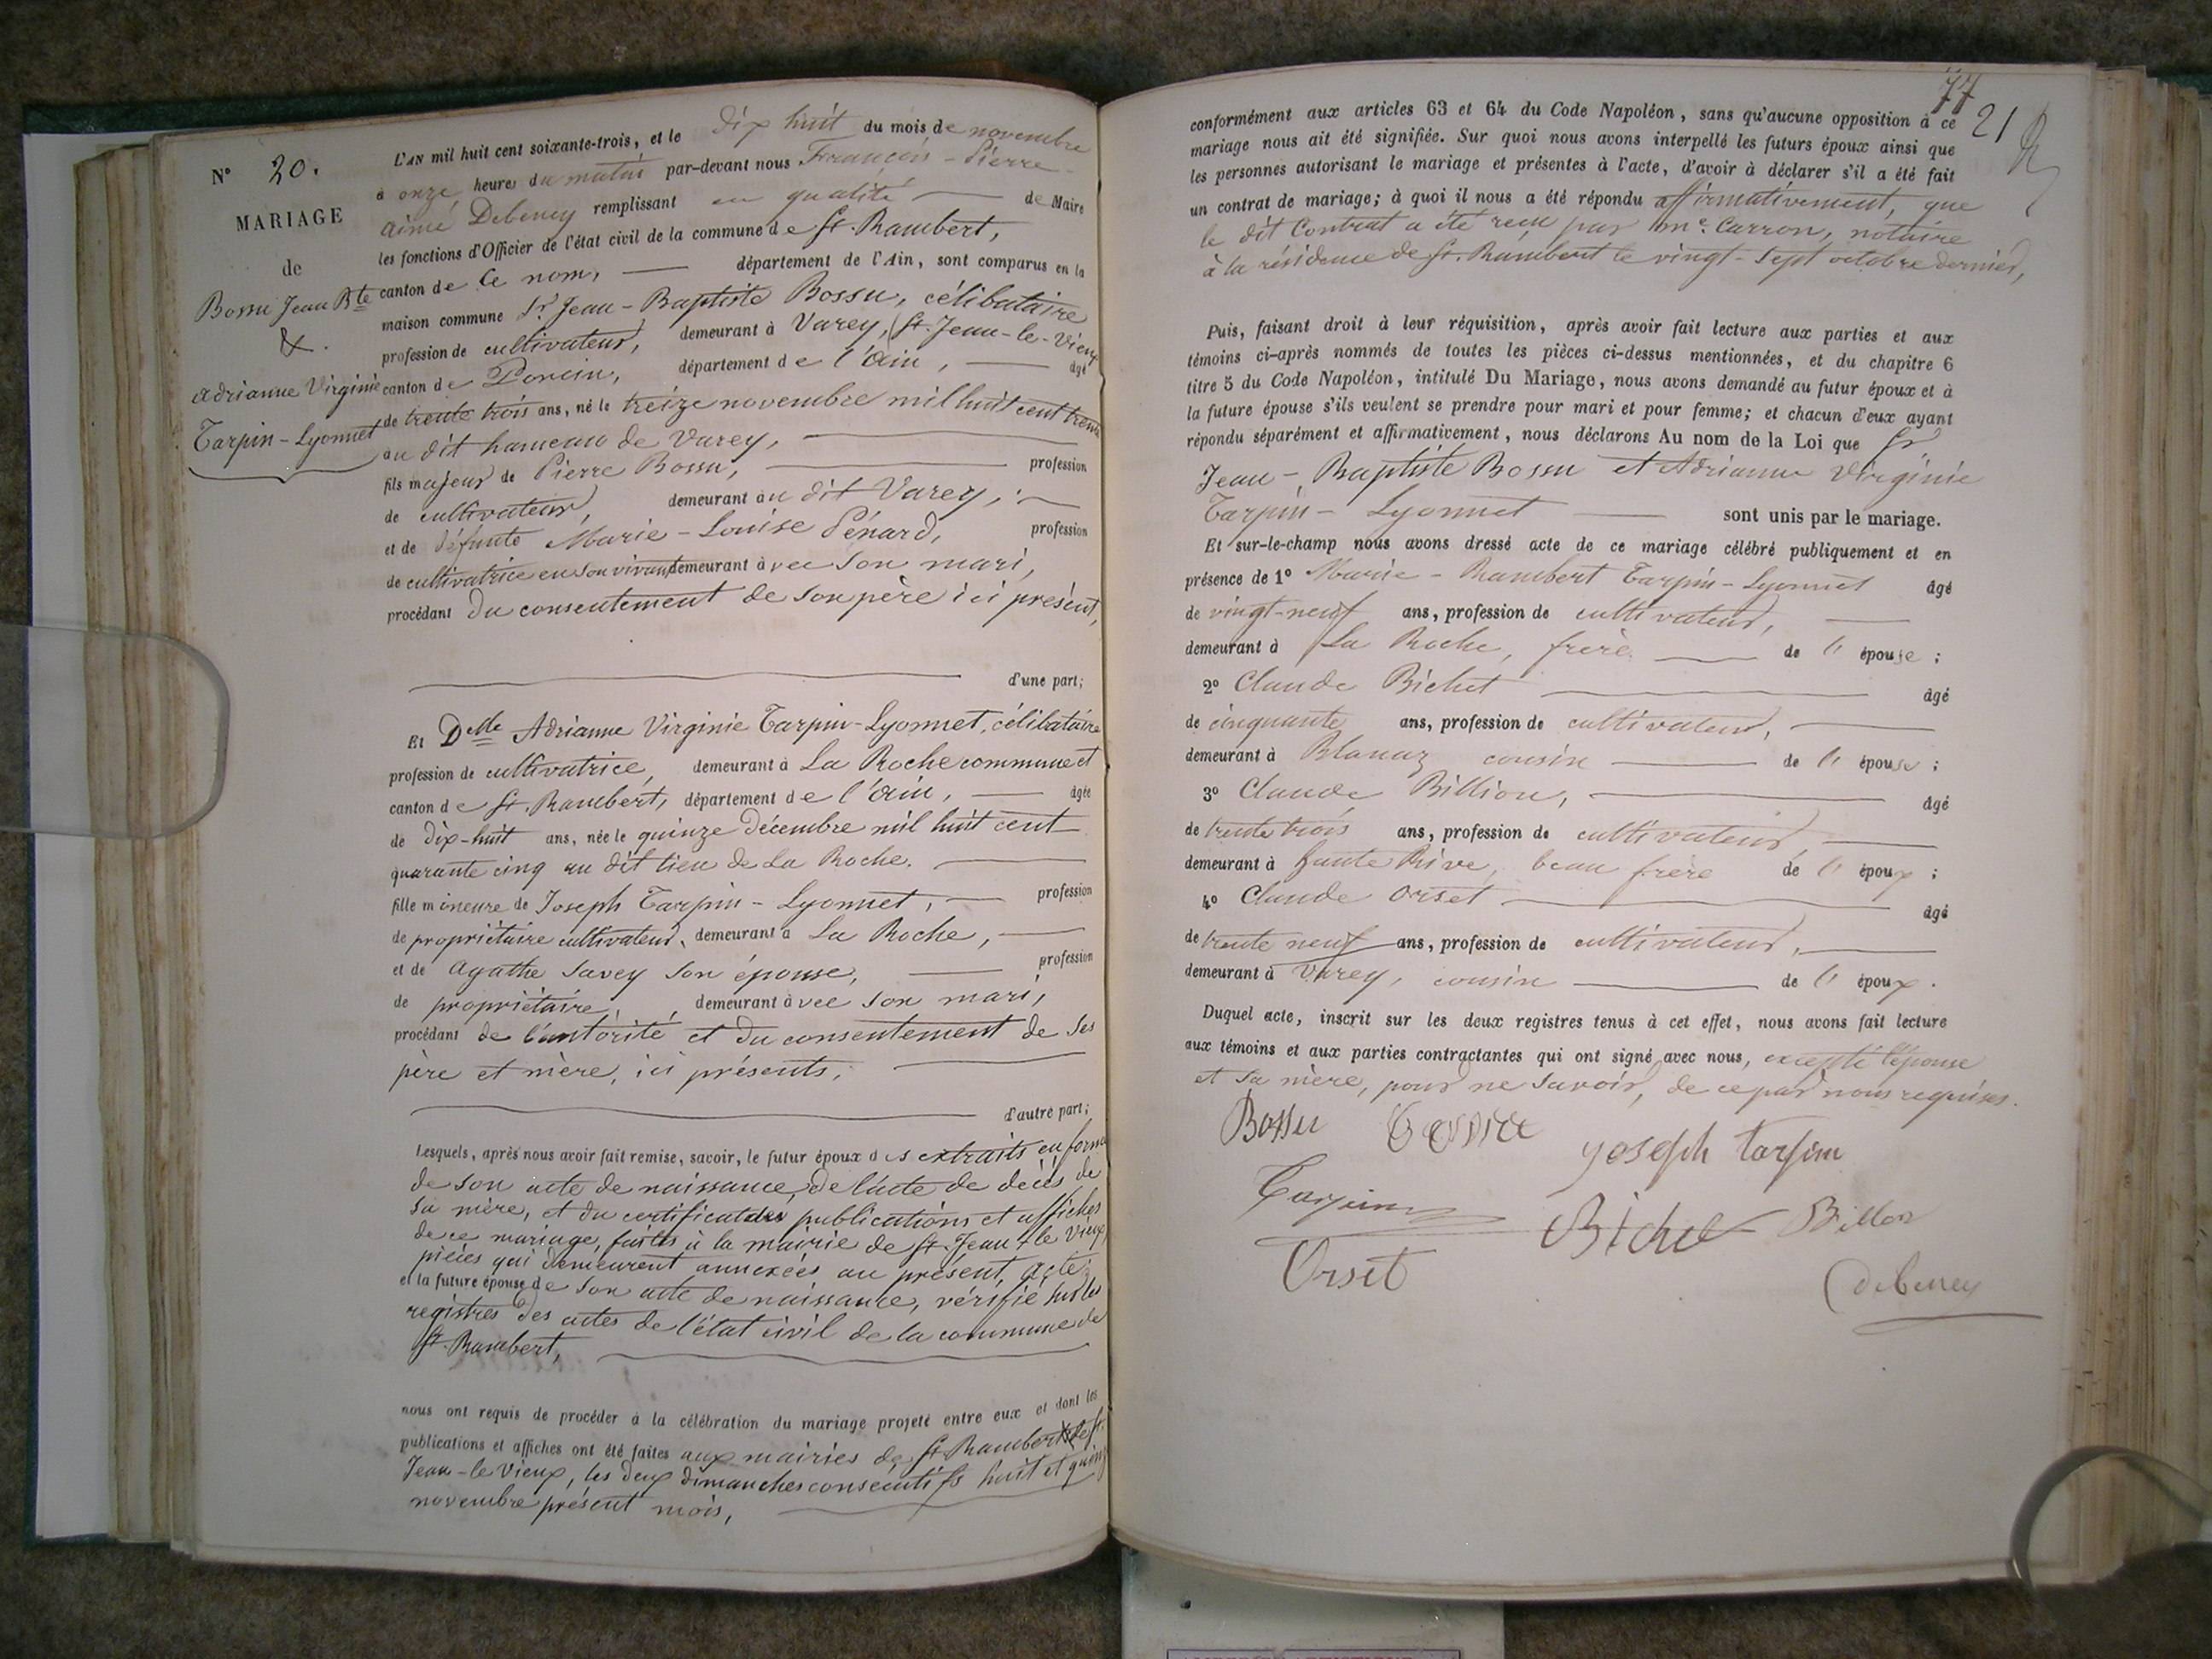 N° 20.
MARIAGE
de
Bossu Jean Bte
&.
Adrianne Virginie
Tarpin-Lyonnet
L'AN mil huit cent soixante-trois, et le dix huit du mois de novembre
à onze heures du matin par-devant nous François-Pierre-
aimé Debeney remplissant en qualité de Maire
les fonctions d'Officier de l'état civil de la commune de St. Rambert,
canton de ce nom, département de l'Ain, sont comparus en la
maison commune Sr. Jean-Baptiste Bossu, célibataire
profession de cultivateur, demeurant à Varey, (St. Jean-le-Vieux
canton de Poncin, département de l'Ain, âgé
de trente trois ans, né le treize novembre mil huit cent trente
au dit hameau de Varey,
fils majeur de Pierre Bossu, profession
de cultivateur, demeurant au dit Varey,
et de défunte Marie-Louise Pénard, profession
de cultivatrice en son vivant demeurant avec son mari,
procédant du consentement de son père ici présent,
d'une part;
Et Delle Adrianne Virginie Tarpin-Lyonnet, célibataire
profession de cultivatrice, demeurant à La Roche commune et
canton de St. Rambert, département de l'Ain, âgée
de dix-huit ans, née le quinze décembre mil huit cent
quarante cinq au dit lieu de La Roche.
fille mineure de Joseph Tarpin-Lyonnet, profession
de propriétaire cultivateur, demeurant à La Roche,
et de Agathe Savey son épouse, profession
de propriétaire, demeurant avec son mari,
procédant de l'autorité et du consentement de ses
père et mère, ici présents,
d'autre part;
Lesquels, après nous avoir fait remise, savoir, le futur époux des extraits en forme
de son acte de naissance, de l'acte de décès de
sa mère, et du certificat des publications et affiches
de ce mariage, faites à la mairie de St. Jean-le Vieux
pièces qui demeurent annexées au présent acte;
et la future épouse de son acte de naissance, vérifié sur les
registres des actes de l'état civil de la commune de
St. Rambert,
nous ont requis de procéder à la célébration du mariage projeté entre eux et dont les
publications et affiches ont été faites aux mairies de St. Rambert & de St.
Jean-le Vieux, les deux dimanches consécutifs huit et quinze
novembre présent mois,
77
21
conformément aux articles 63 et 64 du Code Napoléon, sans qu'aucune opposition à ce
mariage nous ait été signifiée. Sur quoi nous avons interpellé les futurs époux ainsi que
les personnes autorisant le mariage et présentes à l'acte, d'avoir à déclarer s'il a été fait
un contrat de mariage; à quoi il nous a été répondu affirmativement, que
le dit Contrat a été recu par Me. Carron, notaire
à la résidence de St. Rambert le vingt-sept octobre dernier,
Puis, faisant droit à leur réquisition, après avoir fait lecture aux parties et aux
témoins ci-après nommés de toutes les pièces ci-dessus mentionnées, et du chapitre 6
titre 5 du Code Napoléon, intitulé Du Mariage, nous avons demandé au futur époux et à
la future épouse s'ils veulent se prendre pour mari et pour femme; et chacun d'eux ayant
répondu séparément et affirmativement, nous déclarons Au nom de la Loi que Sr
Jean-Baptiste Bossu et Adrianne Virginie
Tarpin-Lyonnet sont unis par le mariage.
Et sur-le-champ nous avons dressé acte de ce mariage célébré publiquement et en
présence de 1° Marie-Rambert Tarpin-Lyonnet âgé
de vingt-neuf ans, profession de cultivateur,
demeurant à La Roche, frère de l' épouse;
2° Claude Bichet âgé
de cinquante ans, profession de cultivateur,
demeurant à Blanaz cousin de l' épouse;
3° Claude Billion, âgé
de trente trois ans, profession de cultivateur,
demeurant à haute Rive, beau frère de l' époux;
4° Claude Orset âgé
de trente neuf ans, profession de cultivateur,
demeurant à Varey, cousin de l' époux.
Duquel acte, inscrit sur les deux registres tenus à cet effet, nous avons fait lecture
aux témoins et aux parties contractantes qui ont signé avec nous, excepté l'épouse
et sa mère, pour ne savoir, de ce par nous requises.
Bossu
joseph tarpin
Tarpin
Bichet
Billon
Orset
Debeney